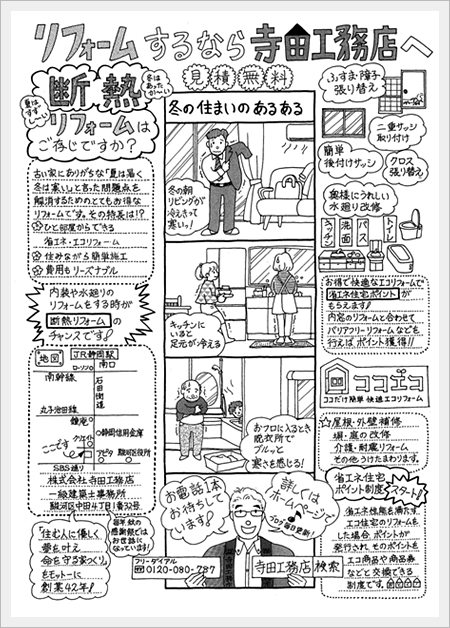 リフォームするなら寺田工務店へ
見積無料
夏は
すずし〜い
冬は
あったか〜い
断熱
リフォームは
ご存じですか？
古い家とありがちな「夏は暑く
冬は寒い」と言った問題点を
解消するためのとてもお得な
リフォームです。その特長は!?
☆ひと部屋からできる
省エネ・エコリフォーム
☆住みながら簡単施工
☆費用もリーズナブル
内装や水廻りの
リフォームをする時が
断熱リフォームの
チャンスです!
地図
JR静岡駅
南口
ローソン
南幹線
石田街道
丸子池田線
鐘庵
静岡信用金庫
ここです
アピタ
駿河区役所
SBS通り
株式会社寺田工務店
一級建築士事務所
駿河区中田4丁目1番32号
「住む人に優しく
夢を叶え
命を守る家づくり」
をモットーに
創業42年!
毎年秋の
感謝祭では
お世話に
なっています!
冬の住まいのあるある
冬の朝
リビングが
冷えきって
寒い!
キッチンに
いると
足元が冷える
おフロに入るとき
脱衣所で
ブルッと
寒さを感じる!
お電話1本
お待ちして
います!
詳しくは
ホームページで
ブログ毎日更新!
フリーダイアル
0120-080-787
寺田工務店 検索
ふすま・障子
張り替え
二重サッシ
取り付け
簡単
後付けサッシ
クロス
張り替え
奥様にうれしい
水廻り改修
キッチン
洗面
バス
トイレ
お得で快適なエコリフォームで
省エネ住宅ポイントが
もらえます!
内窓のリフォームと合わせて
バリアフリーリフォームなども
行えばポイント獲得!!
ココエコ
ココだけ簡単 快適エコリフォーム
☆屋根・外壁補修
塀・庭の改修
介護・耐震リフォーム
その他うけたまわります。
省エネ住宅
ポイント制度
スタート!
省エネ性能を満たす
エコ住宅のリフォームを
した場合、ポイントが
発行され そのポイントを
エコ商品や商品券
などと交換できる
制度です。